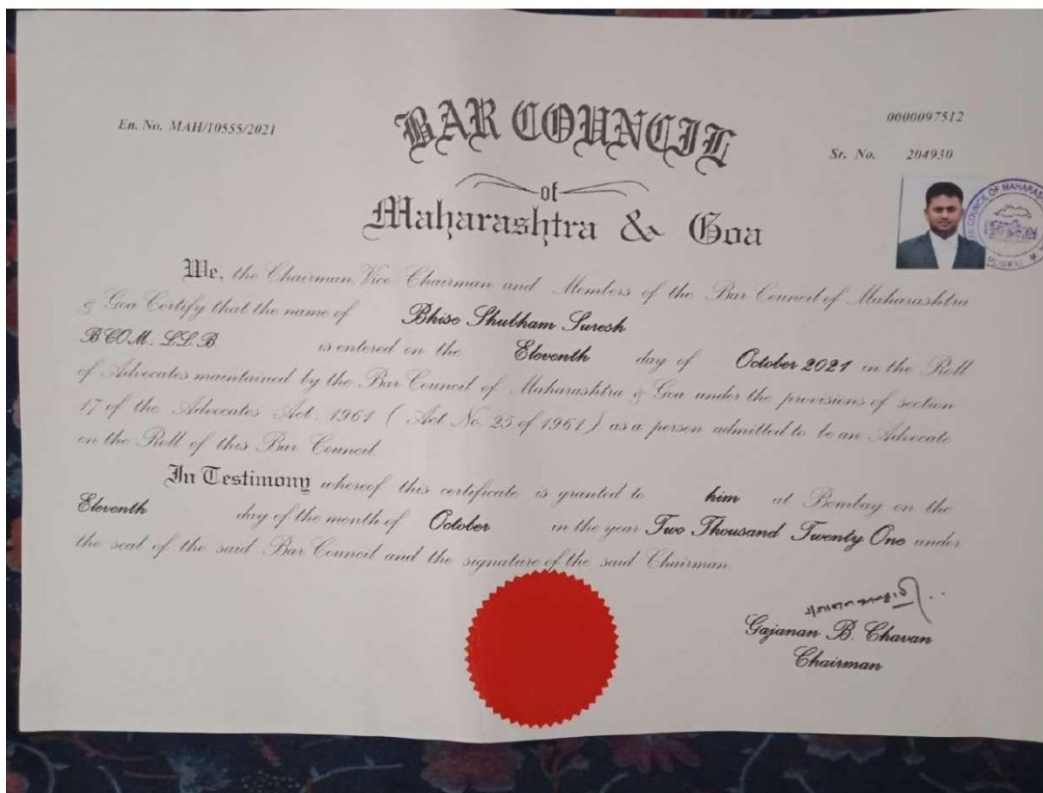 En. No. MAH/10555/2021
0000097512
Sr. No. 204930
BAR COUNCIL
of
Maharashtra & Goa
COUNCIL OF MAHARAS
We, the Chairman, Vice Chairman and Members of the Bar Council of Maharashtra
& Goa Certify that the name of Bhise Shubham Suresh
B.COM. LL.B is entered on the Eleventh day of October 2021 in the Roll
of Advocates maintained by the Bar Council of Maharashtra & Goa under the provisions of section
17 of the Advocates Act. 1961 ( Act No. 25 of 1961 ) as a person admitted to be an Advocate
on the Roll of this Bar Council.
In Testimony whereof this certificate is granted to him at Bombay on the
Eleventh day of the month of October in the year Two Thousand Twenty One under
the seal of the said Bar Council and the signature of the said Chairman.
Gajanan B. Chavan
Chairman